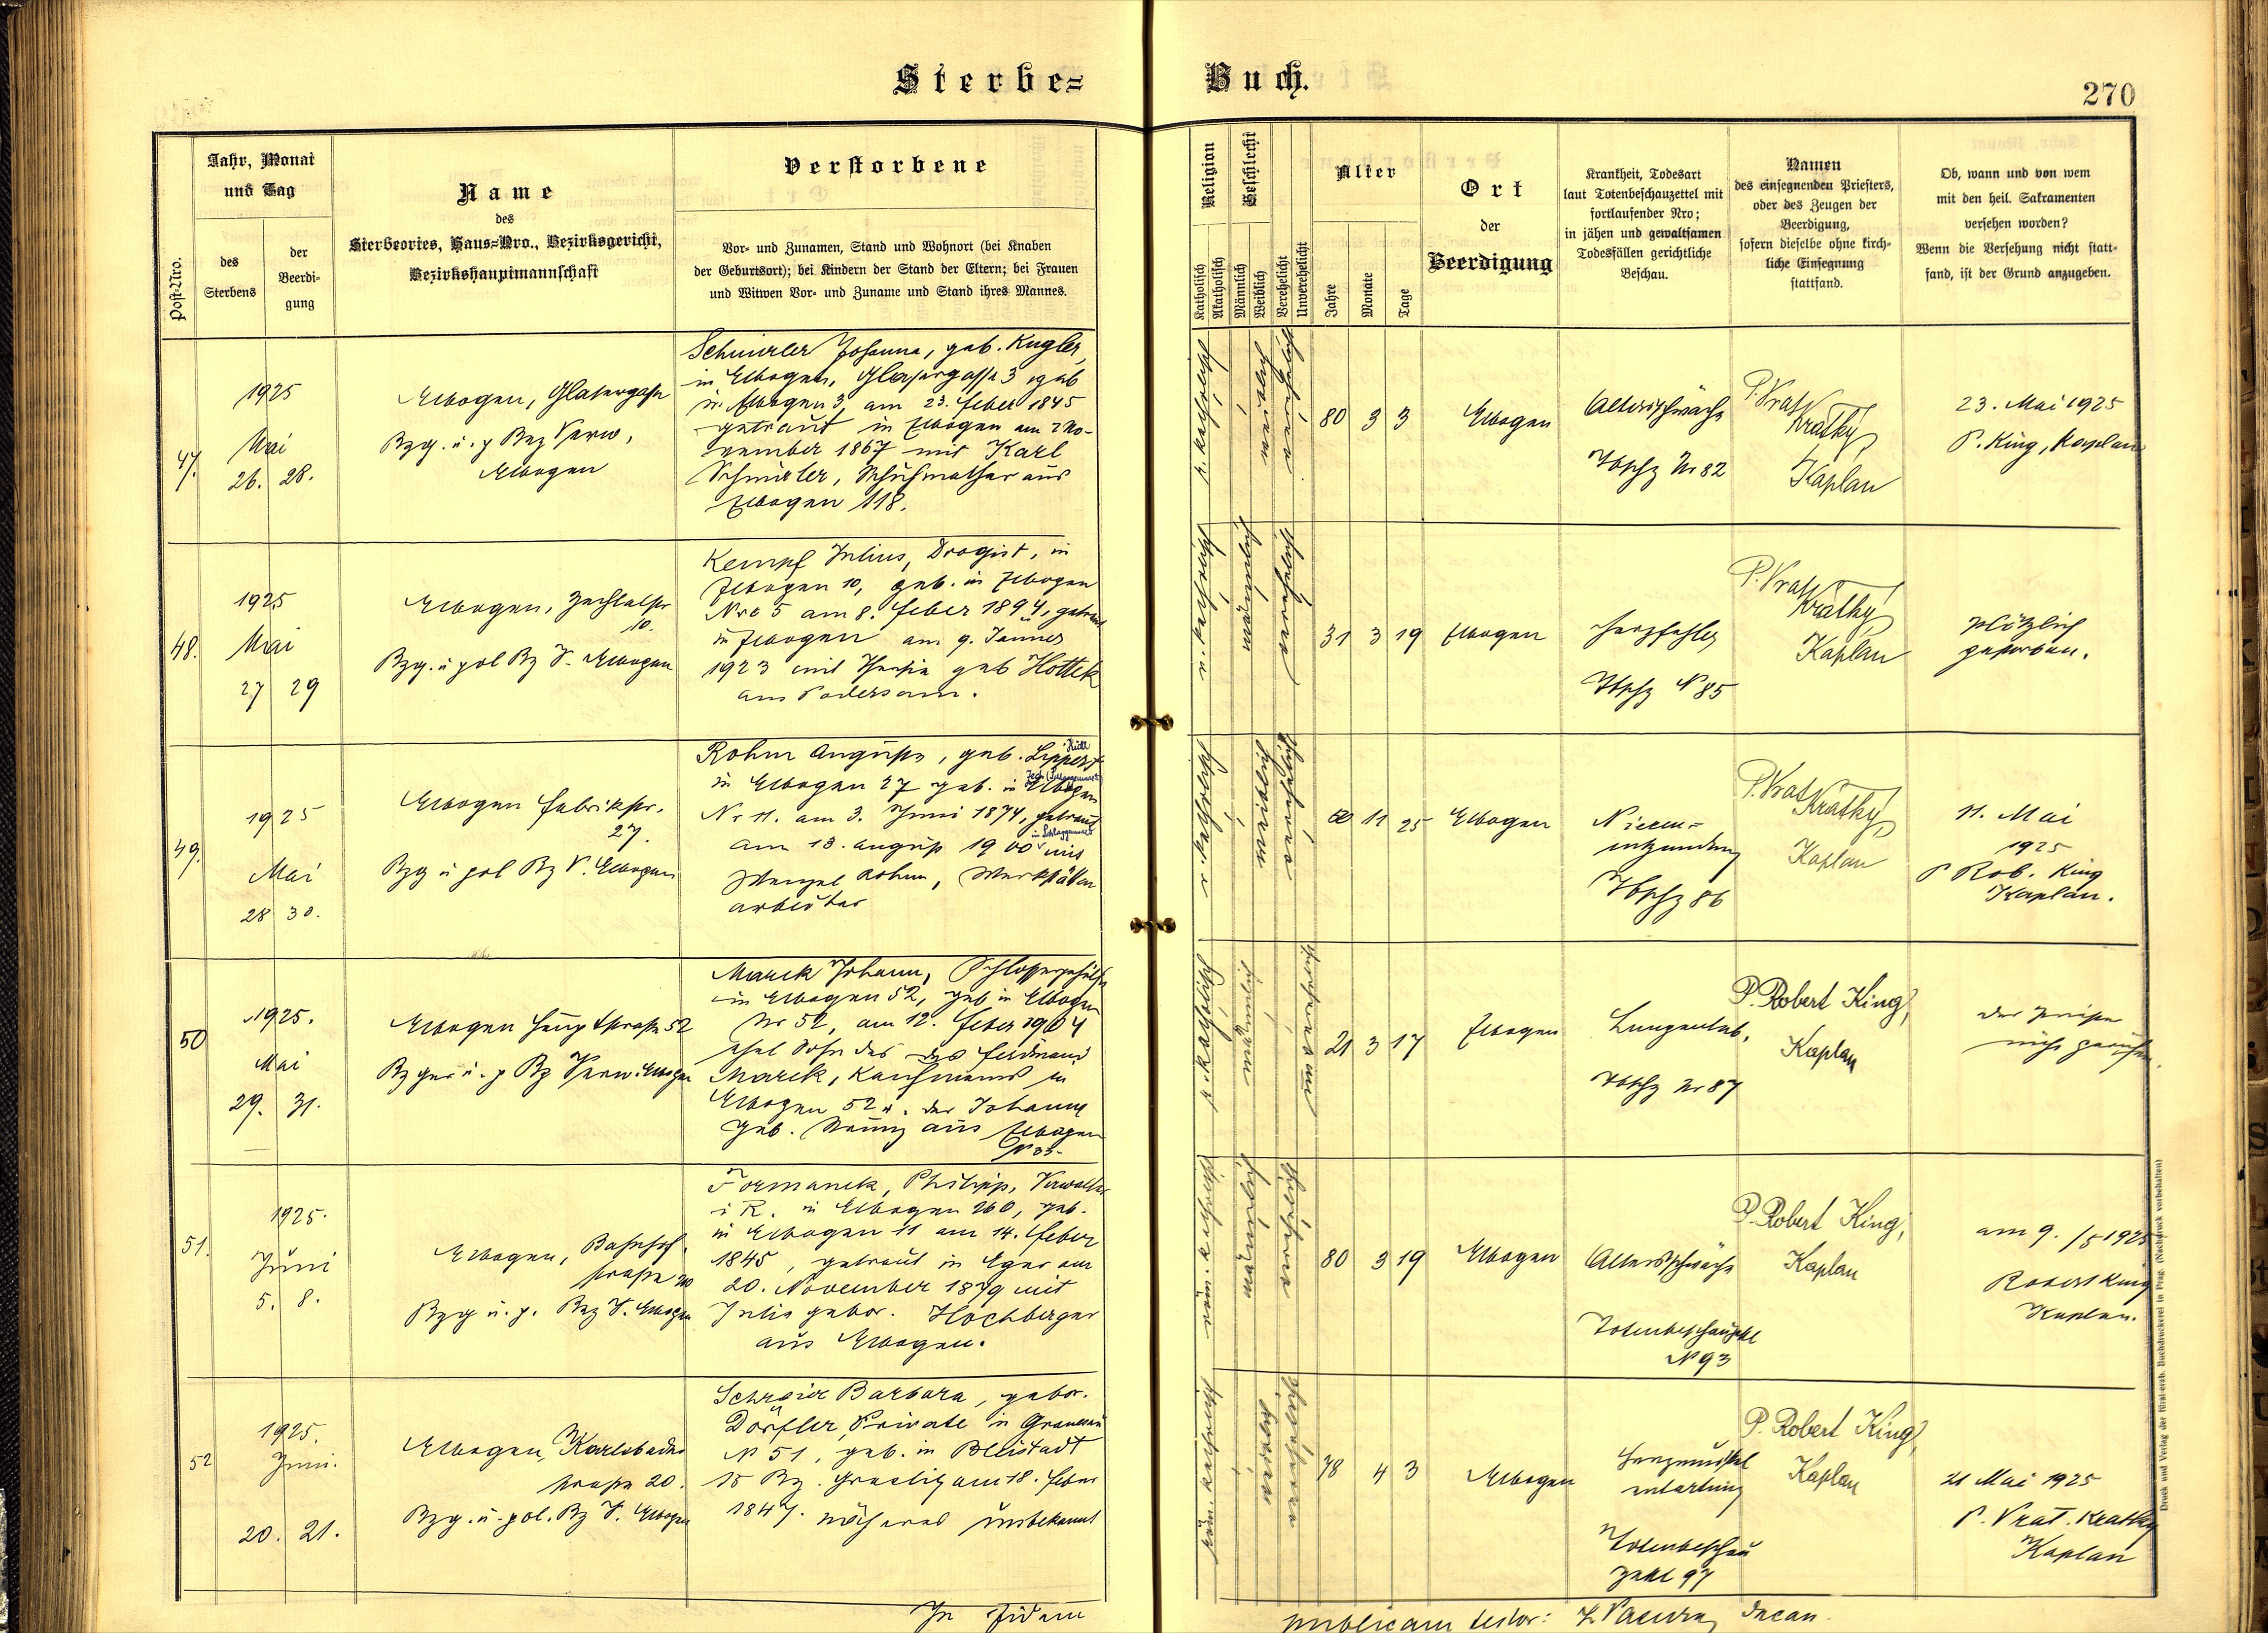 Sterbe=
Buch.
270
Post-Nro.
Jahr, Monat
und Tag
des
Sterbens
der
Beerdi-
gung
Name
des
Sterbeortes, Haus=Nro., Bezirksgericht,
Bezirkshauptmannschaft
Verstorbene
Vor- und Zunamen, Stand und Wohnort (bei Knaben
der Geburtsort); bei Kindern der Stand der Eltern; bei Frauen
und Witwen Vor- und Zuname und Stand ihres Mannes.
Religion
Katholisch
Akatholisch
Geschlecht
Männlich
Weiblich
Verehelicht
Unverehelicht
Alter
Jahre
Monate
Tage
Ort
der
Beerdigung
Krankheit, Todesart
laut Totenbeschauzettel mit
fortlaufender Nro;
in jähen und gewaltsamen
Todesfällen gerichtliche
Beschau.
Namen
des einsegnenden Priesters,
oder des Zeugen der
Beerdigung,
sofern dieselbe ohne kirch-
liche Einsegnung
stattfand.
Ob, wann und von wem
mit den heil. Sakramenten
versehen worden?
Wenn die Versehung nicht statt-
fand, ist der Grund anzugeben.
47.
1925
Mai
26. 28.
Elbogen, Glasergasse
Bzg. u. p Bez Verw,
Elbogen
Johanna, geb. Kugler,
in Elbogen, Glasergasse 3 geb
in Elbogen 3 am 23. Feber 1845
getraut in Elbogen am 2 No-
vember 1867 mit Karl
aus
Elbogen 118.
r. katholisch
weiblich
verehelicht
80 3 3
Elbogen
Altersschwäche
Tbschz Nr 82
P. Vrat Kratky
Kaplan
23. Mai 1925
P. King, Kaplan
48.
1925
Mai
27 29
Elbogen,
10.
Bzg. u pol Bz V. Elbogen
Kempf Julius, Drogist, in
Elbogen 10, geb. in Elbogen
Nro 5 am 8. Feber 1894, getraut
in Elbogen am 9. Jänner
1923 mit geb Hottek
aus Podersam.
r. katholisch
männlich
verehelicht
31 3 19
Elbogen
Herzfehler
Tbschz N 85
P. Vrat Kratky
Kaplan
plötzlich
gestorben.
49.
1925
Mai
28 30.
Elbogen Fabrikstr.
27.
Bzg u pol Bz V. Elbogen
Rohm Auguste, geb. Lippert
in Elbogen 27 geb. in Elbogen
Nr 11. am 3. Juni 1874, getraut
am 13. August 1900 mit
Wenzel Rohm, Werkstätten
arbeiter
r. katholisch
weiblich
verehelicht
50 11 25
Elbogen
Nieren=
entzündung
Tbschz 86
P. Vrat Kratky
Kaplan
11. Mai
1925
P Rob. King
Kaplan.
50
1925.
Mai
29. 31.
Elbogen Hauptstraße 52
Bz ger u. p Bz Verw. Elbogen
Marek Johann, Schlossergehilfe
in Elbogen 52, geb in Elbogen
Nr 52, am 12. Feber 1904
ehel Sohn des des Ferdinand
Marek, Kaufmanns in
Elbogen 52 u. der Johanna
geb. aus Elbogen
N 33.
r. katholisch
männlich
unverehelicht
21 3 17
Elbogen
Lungentub.
Tbschz Nr 87
P. Robert King,
Kaplan
der Priester
nicht gerufen.
51.
1925.
Juni
5. 8.
Elbogen, Bahnhof-
straße
Bzg u. p. Bez V. Elbogen
Formanek, Philipp, Verwalter
i R. in Elbogen 260, geb.
in Elbogen 11 am 14. Feber
1845, getraut in Eger am
20. November 1879 mit
Julie gebor. Hochberger
aus Elbogen.
röm. katholisch
männlich
verehelicht
80 3 19
Elbogen
Altersschwäche
N 93
P. Robert King,
Kaplan
am 9. /5 1925
Robert King
Kaplan.
52
1925.
Juni.
20. 21.
Elbogen, Karlsbader
straße 20.
Bzg. u. pol. Bz V. Elbogen
Barbara, gebor.
Dörfler, Private in
N 51, geb. in Bleistadt
15 Bz. Graslitz am 18. Feber
1847. näheres unbekannt
röm. katholisch
weiblich
verehelicht
78 4 3
Elbogen
Herzmuskel
entartung
Totenbeschau
Zahl 97
P. Robert King,
Kaplan
21 Mai 1925
P. Vrat. Kratky
Kaplan
In fidem
publicam testor:
Druck und Verlag der fürst-erzb. Buchdruckerei in Prag. (Nachdruck vorbehalten)